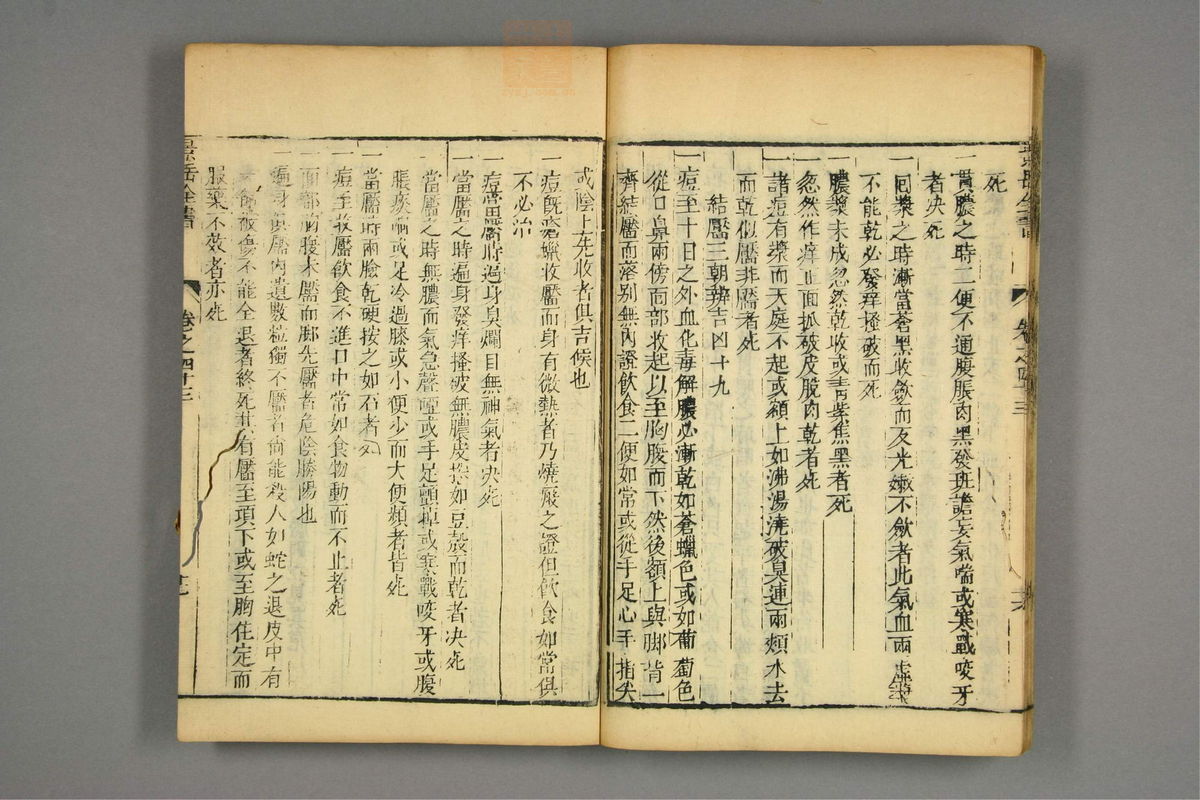 死
一貫膿之時二便不通腹脹肉黑發班譫妄氣喘或寒戰咬牙
者决死
一囘漿之時漸當蒼黑收斂而反光嫩不斂者此氣血兩虛漿
不能乾必發痒搔破而死
膿漿未成忽然乾收或青紫焦黑者死
忽然作痒正面抓破皮脫肉乾者死
諸痘有漿而天庭不起或額上如沸湯澆破臭連兩頰水去
而乾似靨非靨者死
結靨三朝辨吉凶十九
一痘至十日之外血化毒解膿必漸乾如蒼蠟色或如葡萄色
從口鼻兩傍面部收起以至胸腹而下然後額上與脚背一
齊結靨而落别無内證飲食二便如常或從手足心手指尖
或陰上先收者俱吉候也
一痘旣蒼蠟收靨而身有微熱者乃燒瘢之證但飲食如常俱
不必治
一痘當靨時遍身臭爛目無神氣者决死
一當靨之時遍身發痒搔破無膿皮捲如豆殼而乾者决死
當靨之時無膿而氣急聲啞或手足顫掉或寒戰咬牙或腹
脹痰喘或足冷過膝或小便少而大便頻者皆死
一當靨時兩臉乾硬按之如石者死
一痘至收靨飲食不進口中常如食物動而不止者死
一面部胸腹未靨而脚先靨者危陰勝陽也
一遍身俱靨内遺數粒獨不靨者尚能殺人如蛇之退皮中有
被傷不能全退者終死其有靨至項下或至胸住定而
服藥不效者亦死
景岳全書
卷之四十三